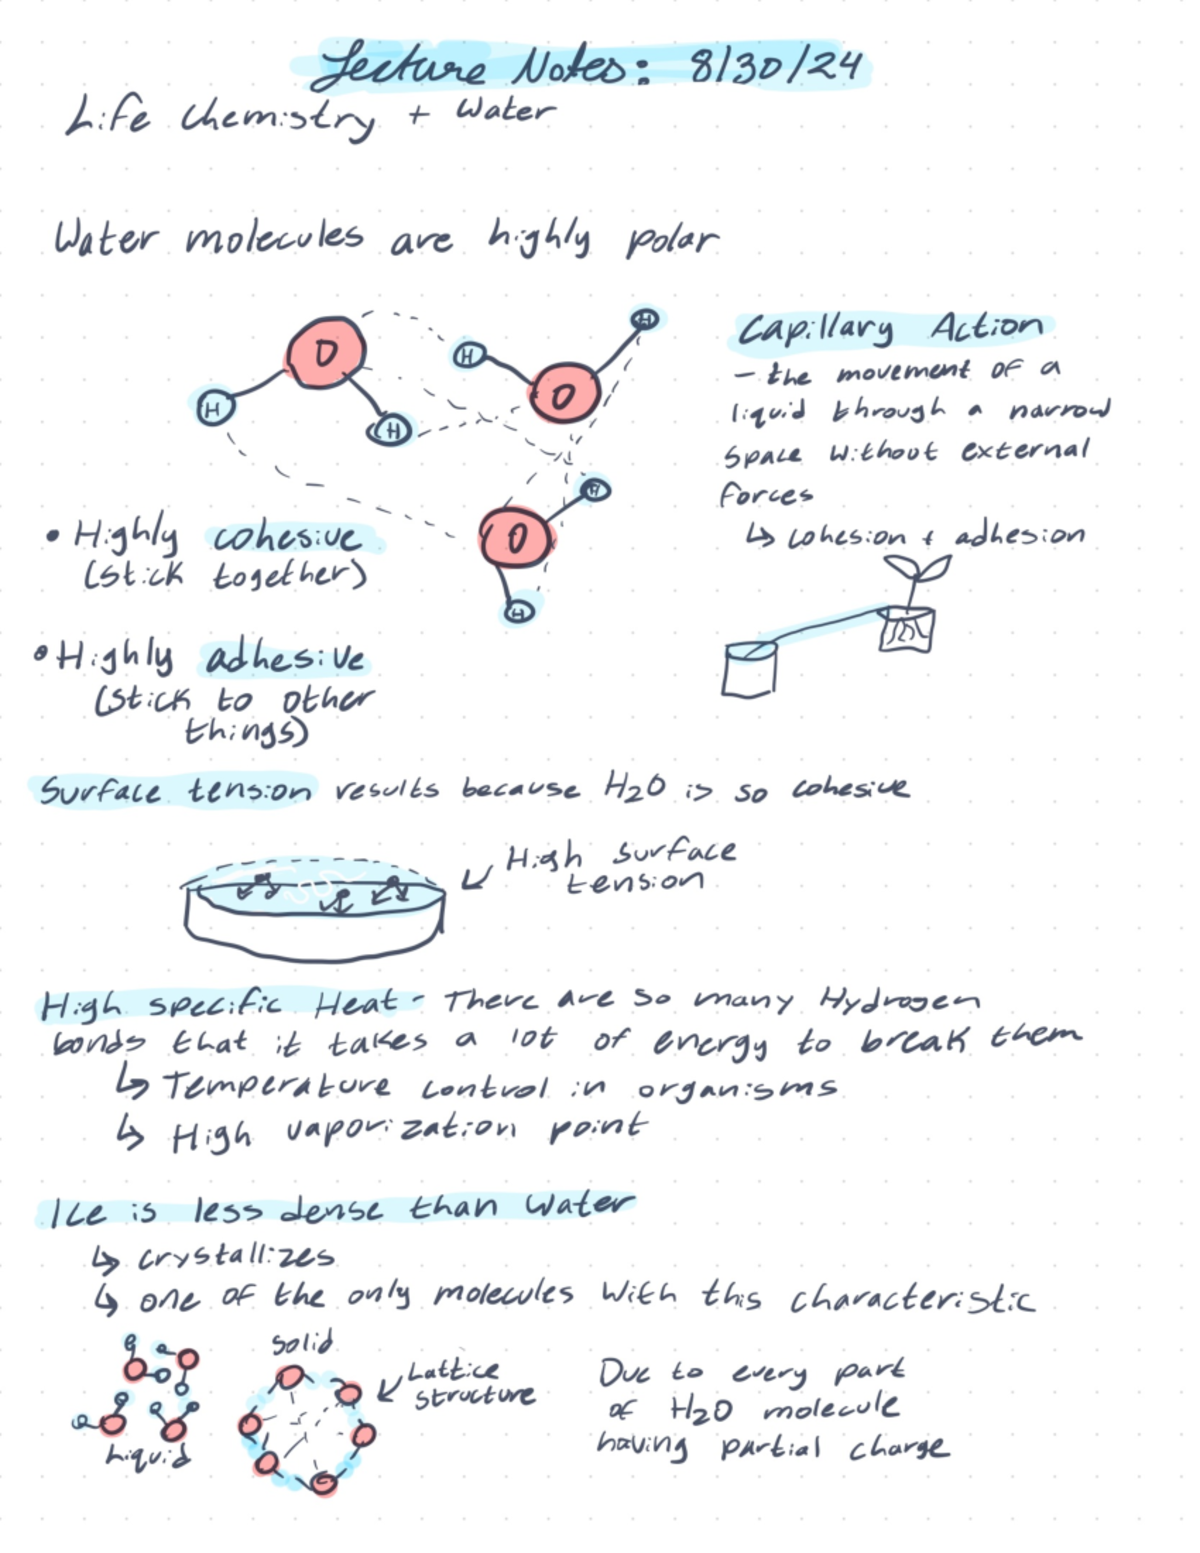 Lecture Notes: 8/30/24
Life Chemistry + Water
Water molecules are highly polar
O
H
H
H
O
H
H
O
H
• Highly cohesive
(stick together)
• Highly adhesive
(stick to other
things)
Capillary Action
- the movement of a
liquid through a narrow
space without external
forces
↳ cohesion + adhesion
Surface tension results because H2O is so cohesive
↙ High surface
tension
High specific Heat - There are so many Hydrogen
bonds that it takes a lot of energy to break them
↳ Temperature control in organisms
↳ High vaporization point
Ice is less dense than water
↳ crystallizes
↳ one of the only molecules with this characteristic
Liquid
Solid
↙ Lattice
structure
Due to every part
of H2O molecule
having partial charge